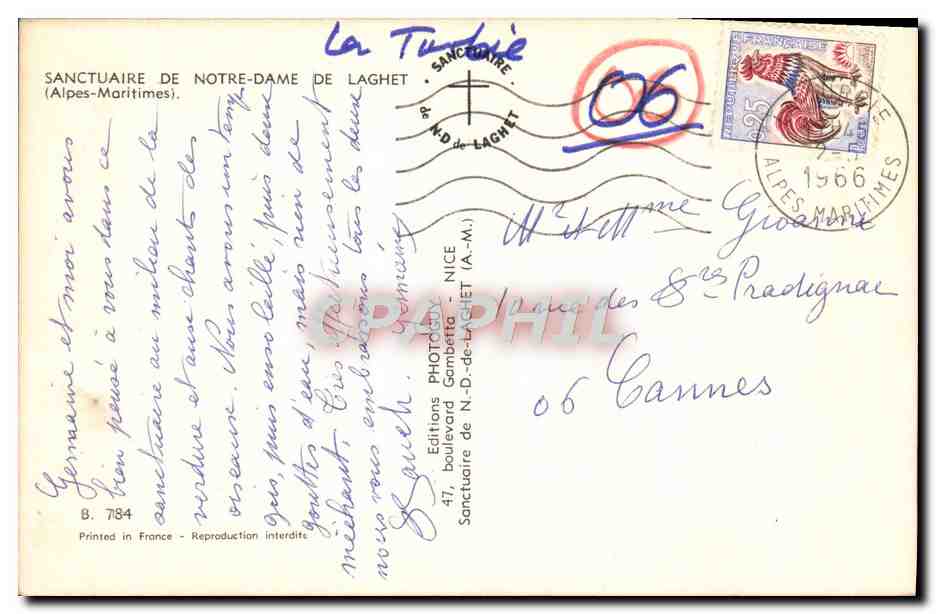 La Turbie
SANCTUAIRE DE NOTRE-DAME DE LAGHET
(Alpes-Maritimes).
SANCTUAIRE
de N-D de LAGHET
06
REPUBLIQUE FRANÇAISE
0,25
1966
ALPES MARITIMES
Germaine et moi avons
bien pensé à vous dans ce
sanctuaire au milieu de la
verdure et aux chants des
oiseaux. Nous avons un temps
gris, puis ensoleillé, puis deux
gouttes d'eau, mais rien de
méchant. Très affectueusement
nous vous embrassons tous les deux
Germaine
Editions PHOTOGUY
47, boulevard Gambetta - NICE
Sanctuaire de N.-D.-de-LAGHET (A.-M.)
Mr et Mme
rue des Frres Pradignac
06 Cannes
CPAPHIL
B. 784
Printed in France - Reproduction interdite